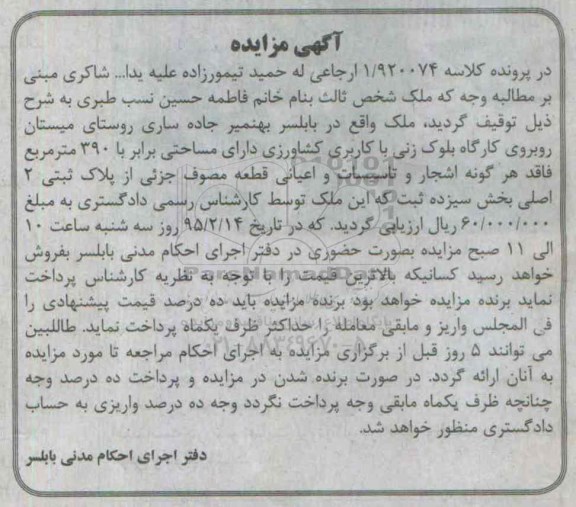 آگهی مزایده
در پرونده کلاسه ۱/۹۲۰۰۷۴ ارجاعی له حمید تیمورزاده علیه یدا... شاکری مبنی
بر مطالبه وجه که ملک شخص ثالث بنام خانم فاطمه حسین نسب طبری به شرح
ذیل توقیف گردید، ملک واقع در بابلسر بهنمیر جاده ساری روستای میستان
روبروی کارگاه بلوک زنی با کاربری کشاورزی دارای مساحتی برابر با ۳۹۰ مترمربع
فاقد هر گونه اشجار و تأسیسات و اعیانی قطعه مصوف جزئی از پلاک ثبتی ۲
اصلی بخش سیزده ثبت که این ملک توسط کارشناس رسمی دادگستری به مبلغ
۶۰/۰۰۰/۰۰۰ ریال ارزیابی گردید. که در تاریخ ۹۵/۲/۱۴ روز سه شنبه ساعت ۱۰
الی ۱۱ صبح مزایده بصورت حضوری در دفتر اجرای احکام مدنی بابلسر بفروش
خواهد رسید کسانیکه بالاترین قیمت را با توجه به نظریه کارشناس پرداخت
نماید برنده مزایده خواهد بود برنده مزایده باید ده درصد قیمت پیشنهادی را
فی المجلس واریز و مابقی معامله را حداکثر ظرف یکماه پرداخت نماید. طاللبین
می توانند ۵ روز قبل از برگزاری مزایده به اجرای احکام مراجعه تا مورد مزایده
به آنان ارائه گردد. در صورت برنده شدن در مزایده و پرداخت ده درصد وجه
چنانچه ظرف یکماه مابقی وجه پرداخت نگردد وجه ده درصد واریزی به حساب
دادگستری منظور خواهد شد.
دفتر اجرای احکام مدنی بابلسر